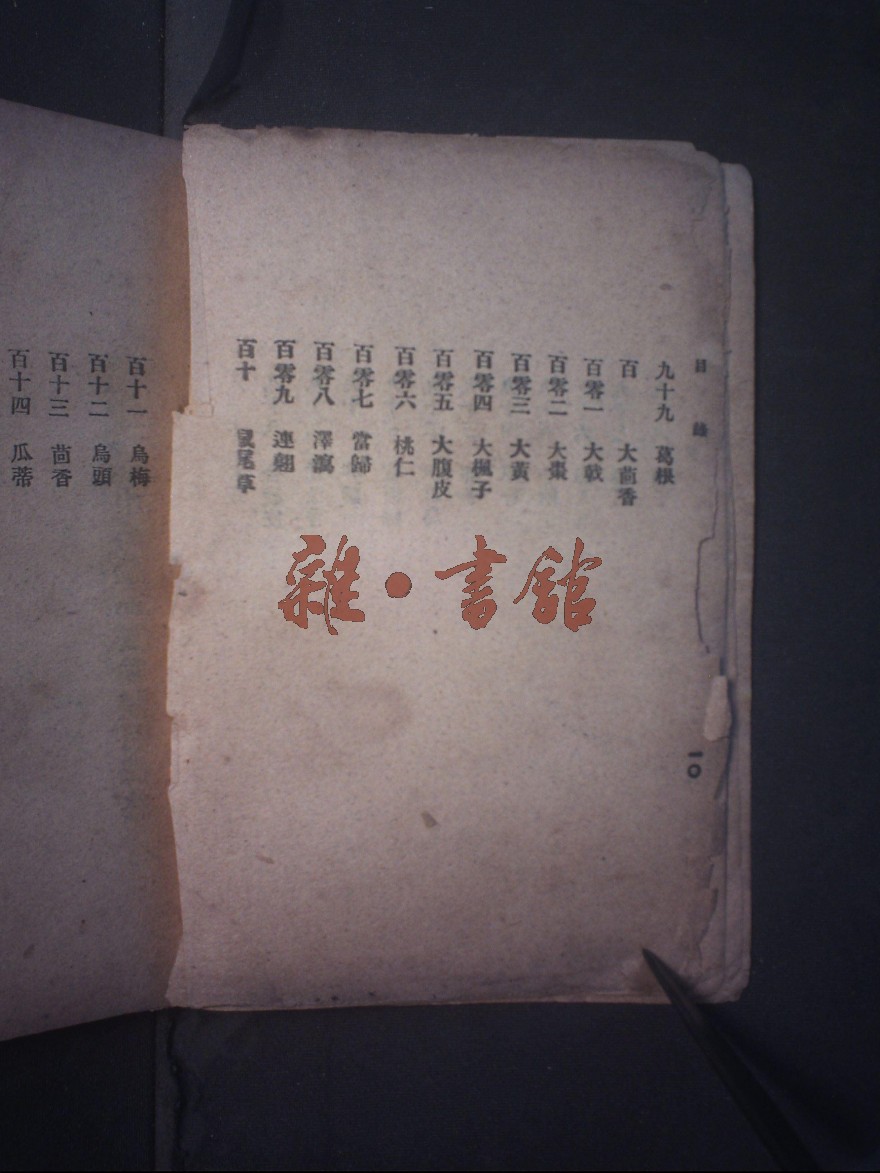 目錄
九十九 葛根
百 大茴香
百零一 大戟
百零二 大棗
百零三 大黃
百零四 大楓子
百零五 大腹皮
百零六 桃仁
百零七 當歸
百零八 澤瀉
百零九 連翹
百十 鼠尾草
一〇
百十一 烏梅
百十二 烏頭
百十三 茴香
百十四 瓜蒂
雜·書館